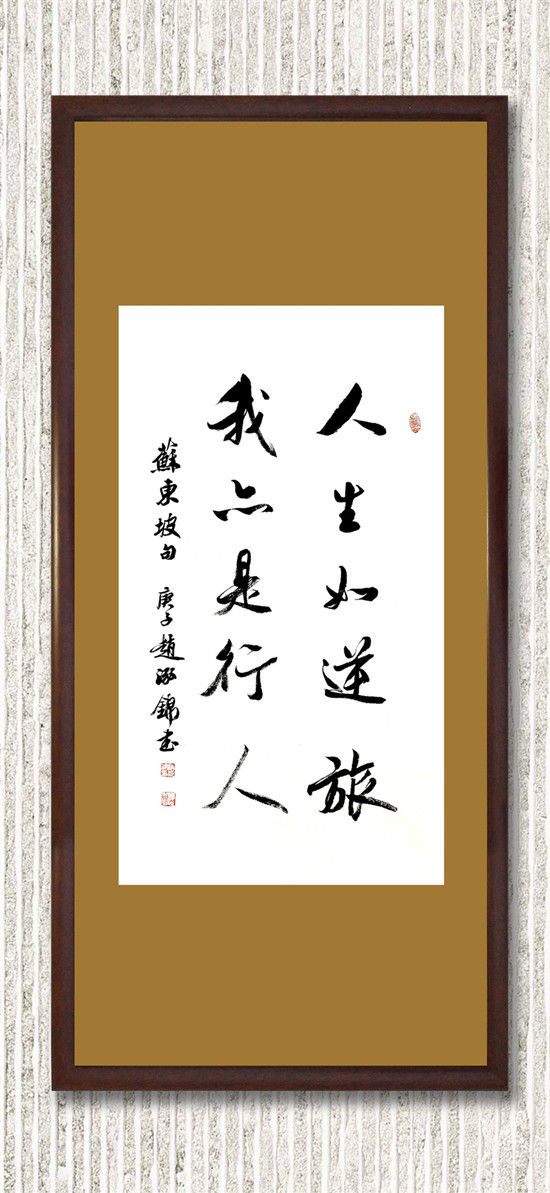 人生如逆旅
我亦是行人
蘇東坡句 庚子趙錦书